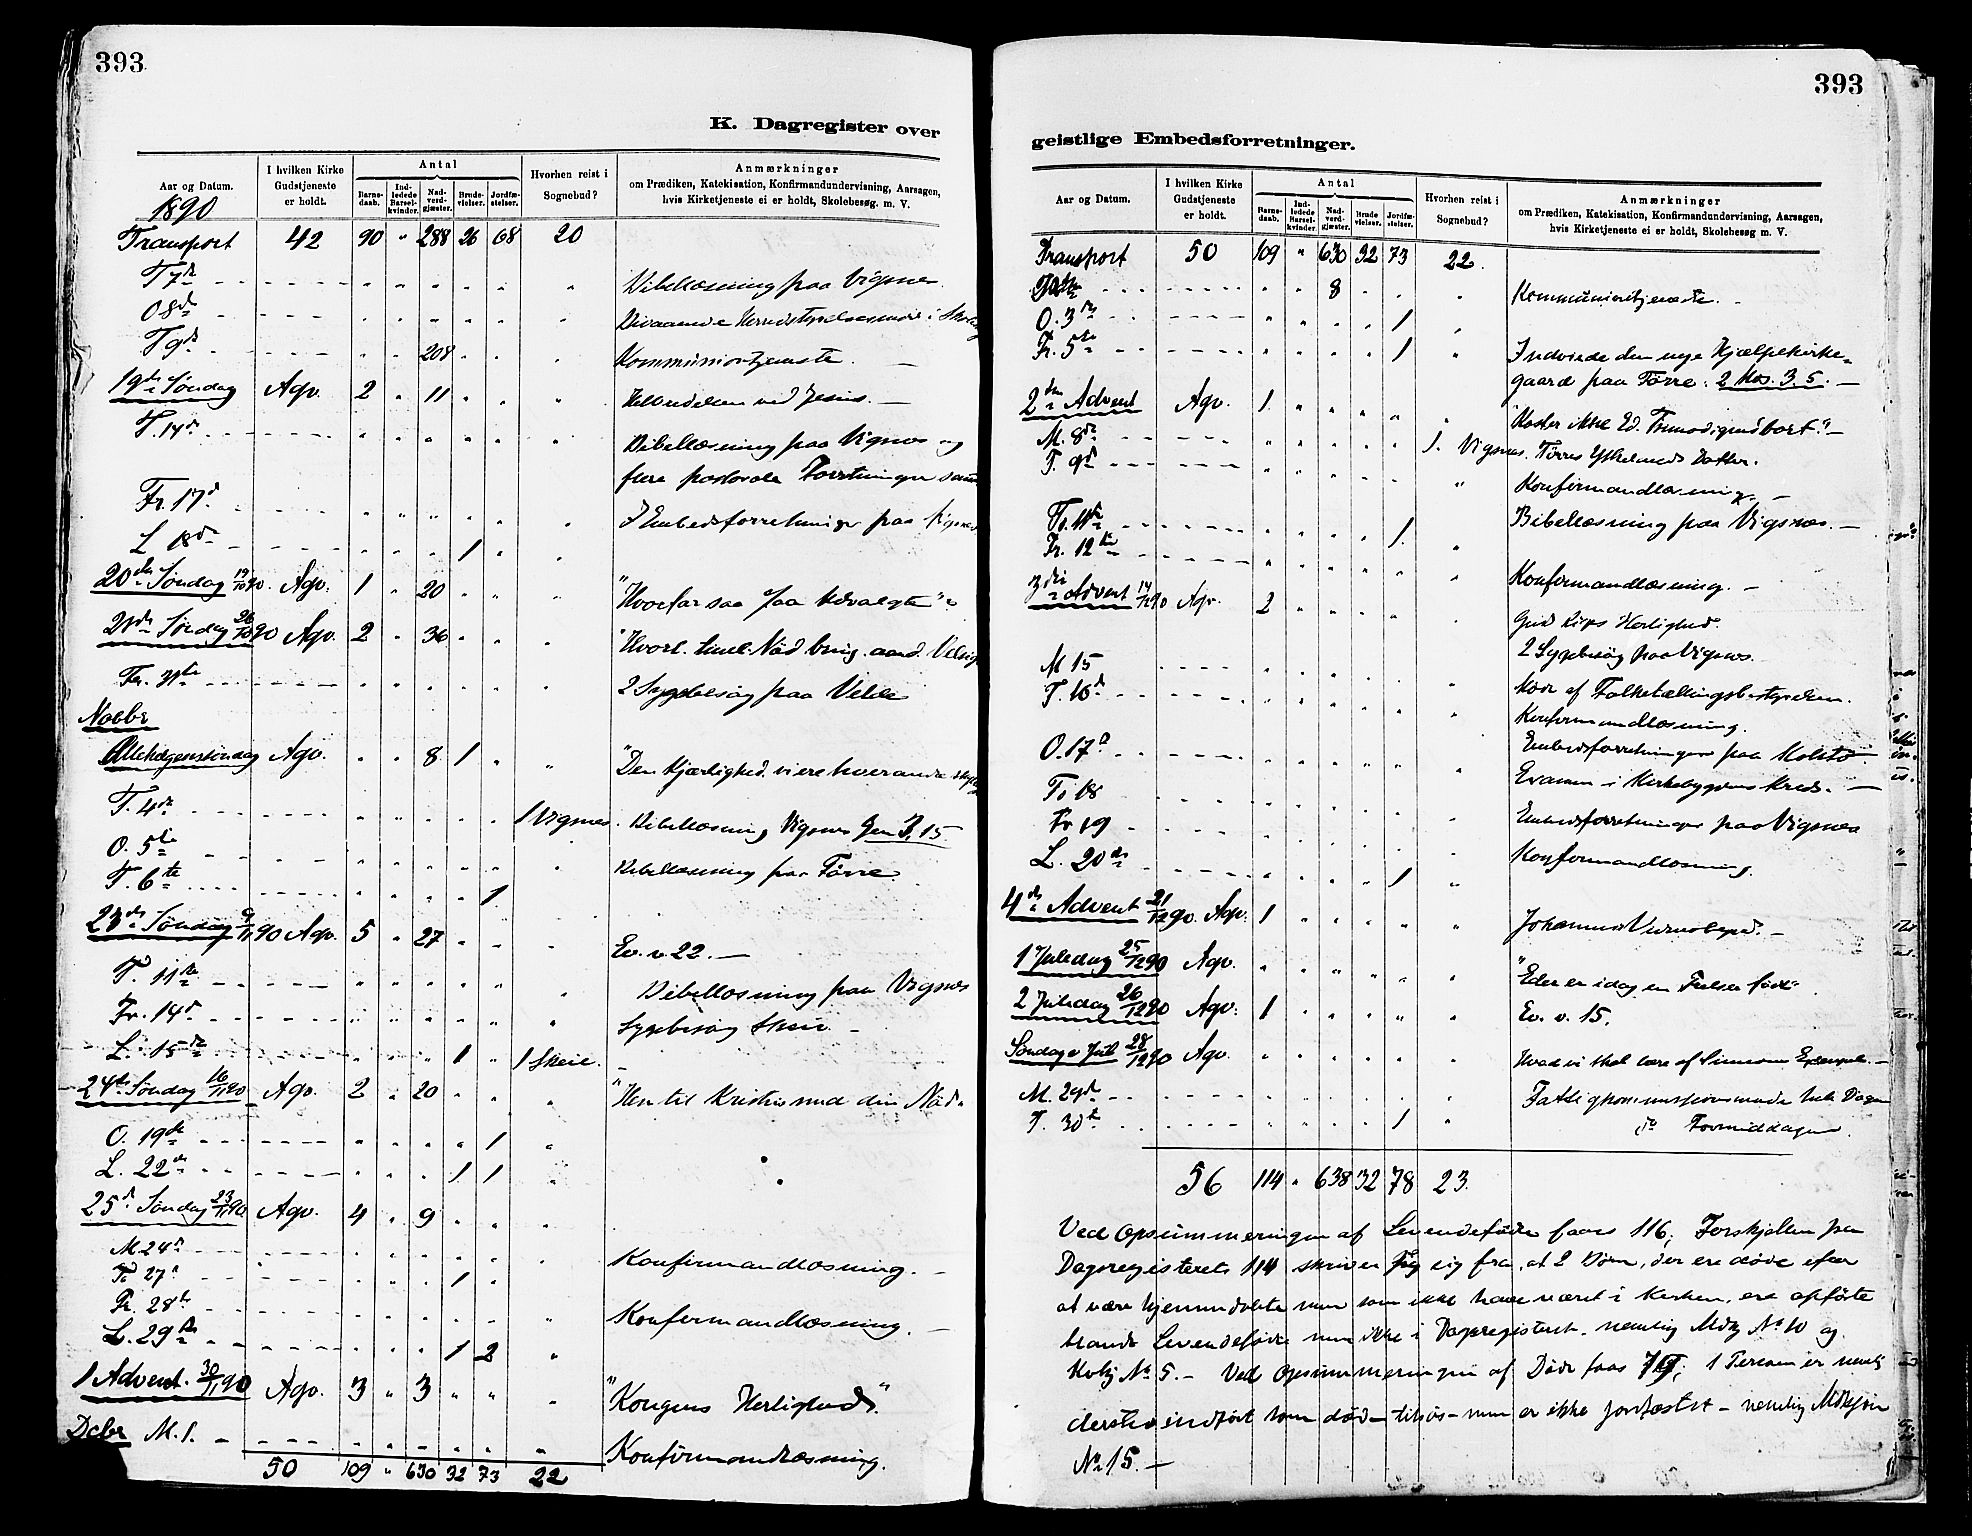 393
K. Dagregister over
Aar og Datum. I hvilken Kirke Gudstjeneste er holdt. Antal Barne-daab. Ind-ledede Barsel-kvinder. Nad-verd-gjæster. Brude-vielser. Jordfæ-stelser. Hvorhen reist i Sognebud? Anmærkninger om Prædiken, Katekisation, Konfirmandundervisning, Aarsagen, hvis Kirketjeneste ei er holdt, Skolebesøg m. V.
1890
Transport 42 90 " 288 26 68 20
T 7de Bibellæsning paa Vigsnes
O 8de Herredstyrelsesmøde i
T 9de 208 Kommuniontjeneste.
19de Søndag Agv. 2 " 11 Helbredelsen ved Jesus. —
T. 14de Bibellæsning paa Vigsnes og
flere pastorale Forretninger
Fr. 17d Embedsforretninger paa Vigsnes
L 18de 1
20de Søndag 19/10 90. Agv. 1 20 "Hvorfor saa faa Udvalgte"
21de Søndag 26/10 90 Agv. 2 36
Fr. 31te 2 Sygebesøg paa
Novbr
Allehelgensøndag Agv. 8 1 "Den Kjærlighed vi ere hverandre
T. 4de 1 Vigsnes. Bibellæsning Vigsnes
O. 5te Bibellæsning paa Førre
T. 6te 1
23de Søndag 9/11 90 Agv. 5 27 Ev. v. 22. —
T. 11te Bibellæsning paa Vigsnes
Fr. 14d Sygebesøg Skeie —
L. 15de 1 1 Skeie.
24de Søndag 16/11 90 Agv. 2 20 "Hen til Kristus med din Nød"
O. 19de 1
L. 22de 1 1
25d Søndag 23/11 90. Agv. 4 9
M 24d Konfirmandlæsning. —
To 27d 1
Fr. 28de Konfirmandlæsning. —
L. 29de 1 2
1 Advent. 30/11 90 Agv. 3 " 3 "Kongens Herlighed".
Debr M. 1. Konfirmandlæsning.
50 109 " 630 32 73 22
393
geistlige Embedsforretninger.
Aar og Datum. I hvilken Kirke Gudstjeneste er holdt. Antal Barne-daab. Ind-ledede Barsel-kvinder. Nad-verd-gjæster. Brude-vielser. Jordfæ-stelser. Hvorhen reist i Sognebud? Anmærkninger om Prædiken, Katekisation, Konfirmandundervisning, Aarsagen, hvis Kirketjeneste ei er holdt, Skolebesøg m. V.
Transport 50 109 " 630 32 73 22.
8 Kommuniontjeneste. -
O. 3de 1
Fr. 5te 1 Indviede den nye Hjælpekirke-
gaard paa Førre. 2 Mos. 3. 5. —
2den Advent Agv. 1. "Kaster ikke Ed. Frimodighed bort." —
M. 8de 1. Vigsnes. Datter.
T. 9d Konfirmandlæsning. —
To. 11te 1 Bibellæsning paa Vigsnes. —
Fr. 12te Konfirmandlæsning. —
3die Advent 14/12 90 Agv. 2 Herlighed.
M 15 2 Sygebesøg paa Vigsnes.
T. 16d Møde af Folketællingsbestyrelsen.
Konfirmandlæsning.
O. 17d Embedsforretninger paa
To 18 Examen i Kirkebygdens Kreds. —
Fr 19 Embedsforretninger paa Vigsnes
L. 20de 1 Konfirmandlæsning.
4de Advent 21/12 90. Agv. 1 Johannes Vidnesbyrd. —
1 Juledag 25/12 90 Agv. "Eder er idag en Frelser født"
2 Juledag 26/12 90 Agv. 1 Ev. v. 15.
Søndag e Jul 28/12 90 Agv. Hvad vi skal lære af Simeons Exempel. —
M. 29d Fattigkommissionsmøde hele Dagen
T. 30te 1 do Formiddagen.
56 114 " 638 32 78 23.
Ved Opsummeringen af Levendefødte faaes 116; Forskjellen fra
Dagregisterets 114 skriver sig fra, at 2 Børn, der ere døde efter
at være hjemmedøbte men som ikke have været i Kirken, ere opførte
blandt Levendefødte men ikke i Dagregisteret. nemlig Mdkj No 10 og
Kvkj No 5. — Ved Opsummeringen af Døde faas 79; 1 Person er nemlig
indført som død men er ikke jordfæstet — nemlig Mdkjøn
No 15. —